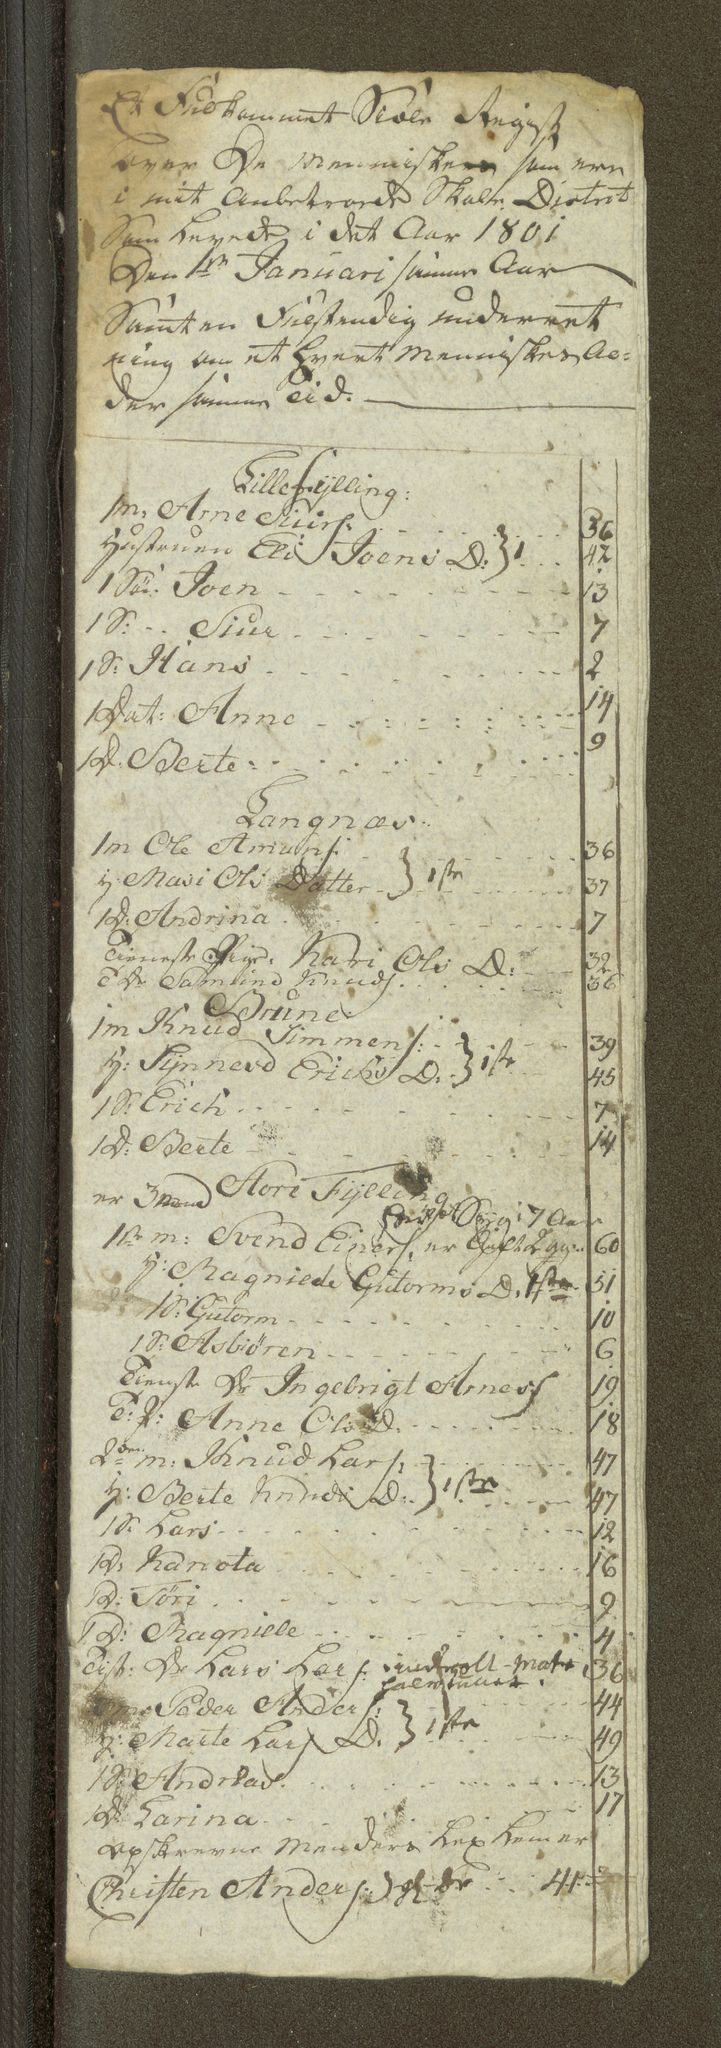 Et Fuldkommet Siæle Regist
over De Mennisker som ere
i mit Anbetroede Skole District
Som levede i det Aar 1801
Den 1ste Januari samme Aar
Samt en Fulstendig underret
ning om et hvert Menniskes Al=
der samme Tid.
Lille Fylling:
1 m: Arne Siurs: 36
Hustruen Eli Joens D: } 1 42
1 Sø: Joen 13
1 S: Siur 7
1 S: Hans 2
1 Dat: Anne 14
1 D. Berte 9
Langnæs
1 m Ole Amunds: 36
H: Mari Ols Datter } 1ste 37
1 D: Andrina 7
Tieneste Pige: Kari Ols D: 32
T Dr Samund Knuds. 36
Brune:
1 m Knud Simmens: 39
H: Synnevd Erichs D. } 1ste 45
1 S: Erich 7
1 D: Berte 14
Store Fylling
er 3 mænd
7 Aar
1ste m: Svend Einers: er Gift 2 gg: 60
H: Magniele Gutorms D. 1ste 51
1 S: Gutorm 10
1 S: Asbiören 6
Tienst Dr Ingebrigt Arness 19
T: P: Anne Ols D. 18
2den m: Knud Lars: 47
H: Berte Knuds D. } 1ste 47
1 S: Lars 12
1 D: Kanota 16
1 D: Töri 9
1 D: Magniele 4
Tist: Dr Lars Lars: 36
m: Peder Anders: 44
H: Marte Lars D. } 1ste 49
1 S: Andreas 13
1 D: Larina 17
opskrevne Menders Lex Lem er
Christen Anders: 41